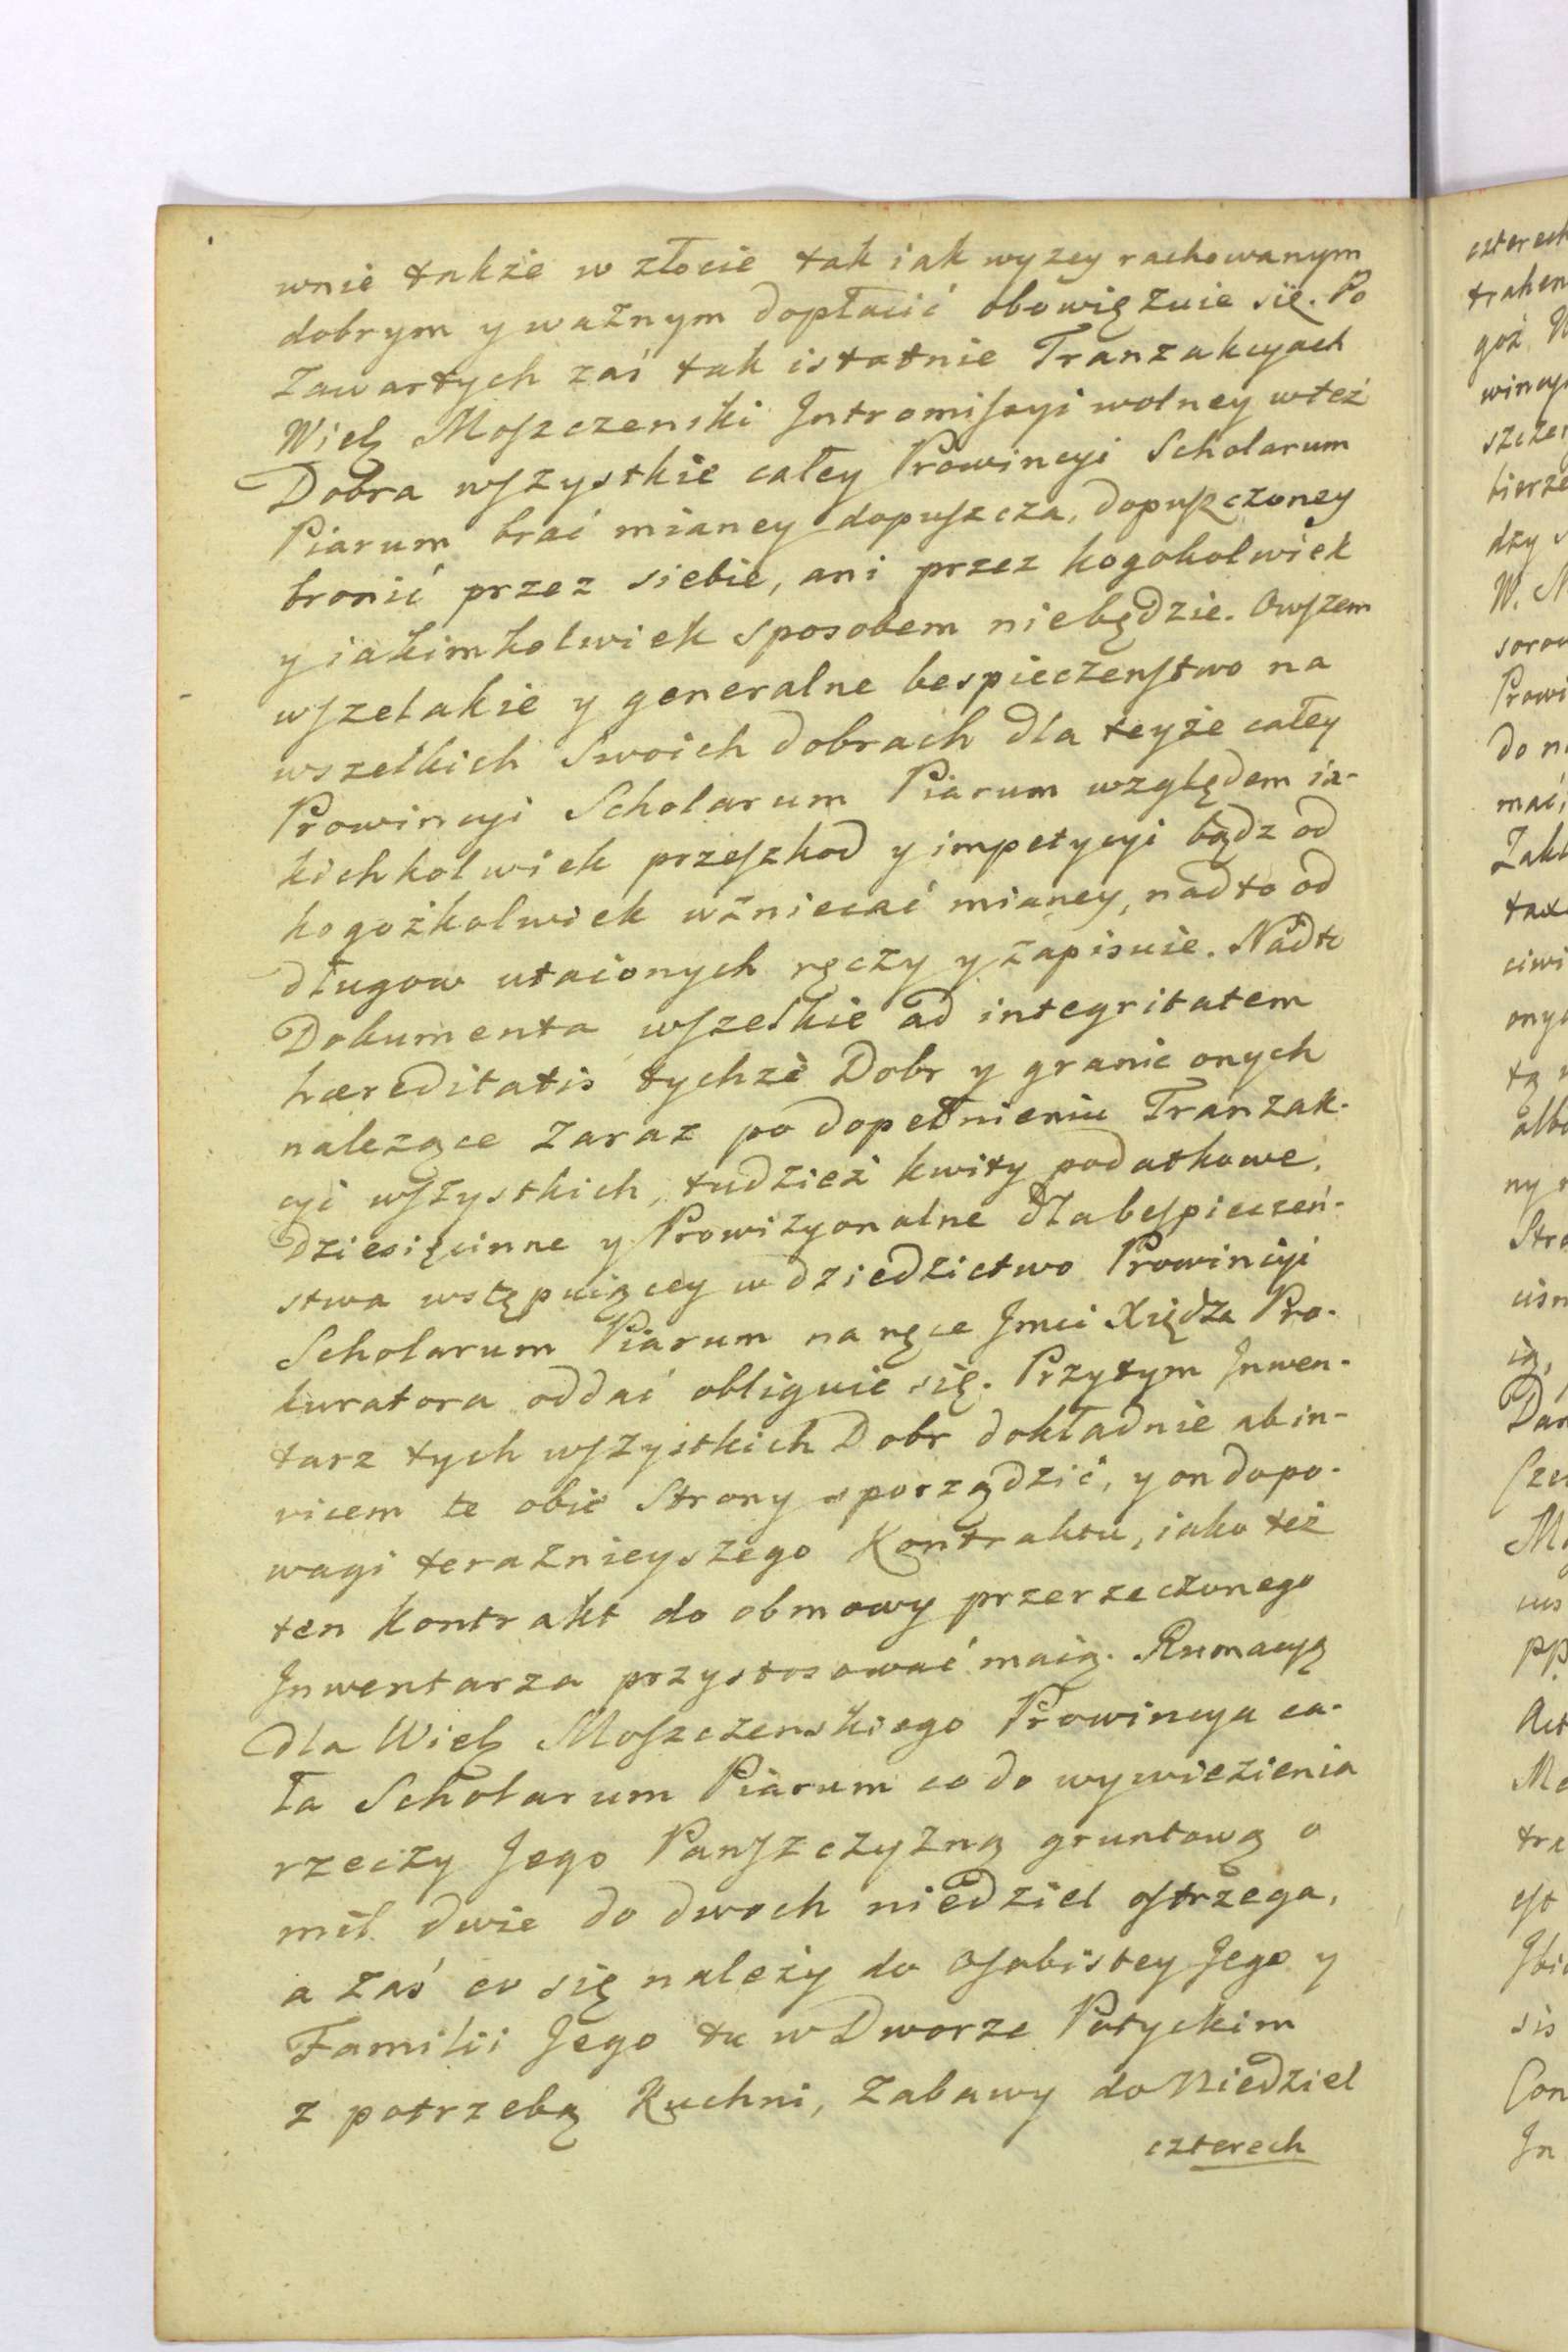 wnie także w złocie tak iak wyzey rachowanym
dobrym y ważnym dopłacić obowięzuie się. Po
Zawartych zaś tak istotnie Tranzakcyach
Wielz Moſzczenski Jntromiſsyi wolney wteż
Dobra wſzystkie całey Prowincyi Scholarum
Piarum brać mianey dopuſzcza, dopuſzczoney
bronić przez siebie, ani przez kogokolwiek
y iakimkolwiek sposobem niebędzie. Owſzem
wſzelakie y generalne bespieczenſtwo na
wszelkich Swoich dobrach dla teyże całey
Prowincyi Scholarum Piarum względem ia-
kichkolwiek przeſzkod y impetycyi bądz od
kogożkolwiek wzniecać mianey, nadto od
długow utaionych ręczy y zapisuie. Nadto
Dokumenta wſzelkie ad integritatem
hæreditatis tychże Dobr y granic onych
nalezące Zaraz po dopełnieniu Tranzak-
cyi wſzystkich, tudzież kwity podatkowe,
Dziesięcinne y Prowizyonalne dla beſpieczeń-
stwa wstępuiącey w dziedzictwo Prowincyi
Scholarum Piarum na ręce Jmci Xiędza Pro-
kuratora oddać obliguie się. Przytym Jnwen-
tarz tych wſzystkich Dobr dokładnie ab in-
vicem te obie Strony sporządzić, y on do po-
wagi teraznieyszego Kontraktu, iako też
ten kontrakt do obmowy przerzeczonego
Jnwentarza przystosować maią. Rumacyą
dla Wielz Moſzczenskiego Prowincya ca-
ła Scholarum Piarum co do wywiezienia
rzeczy Jego Panſzczyzną gruntową o
mil dwie do dwoch niedziel oſtrzega,
a zaś co się należy do Oſobistey Jego y
Familii Jego tu w Dworze Potyckim
z potrzebą Kuchni, Zabawy do Niedziel
czterech